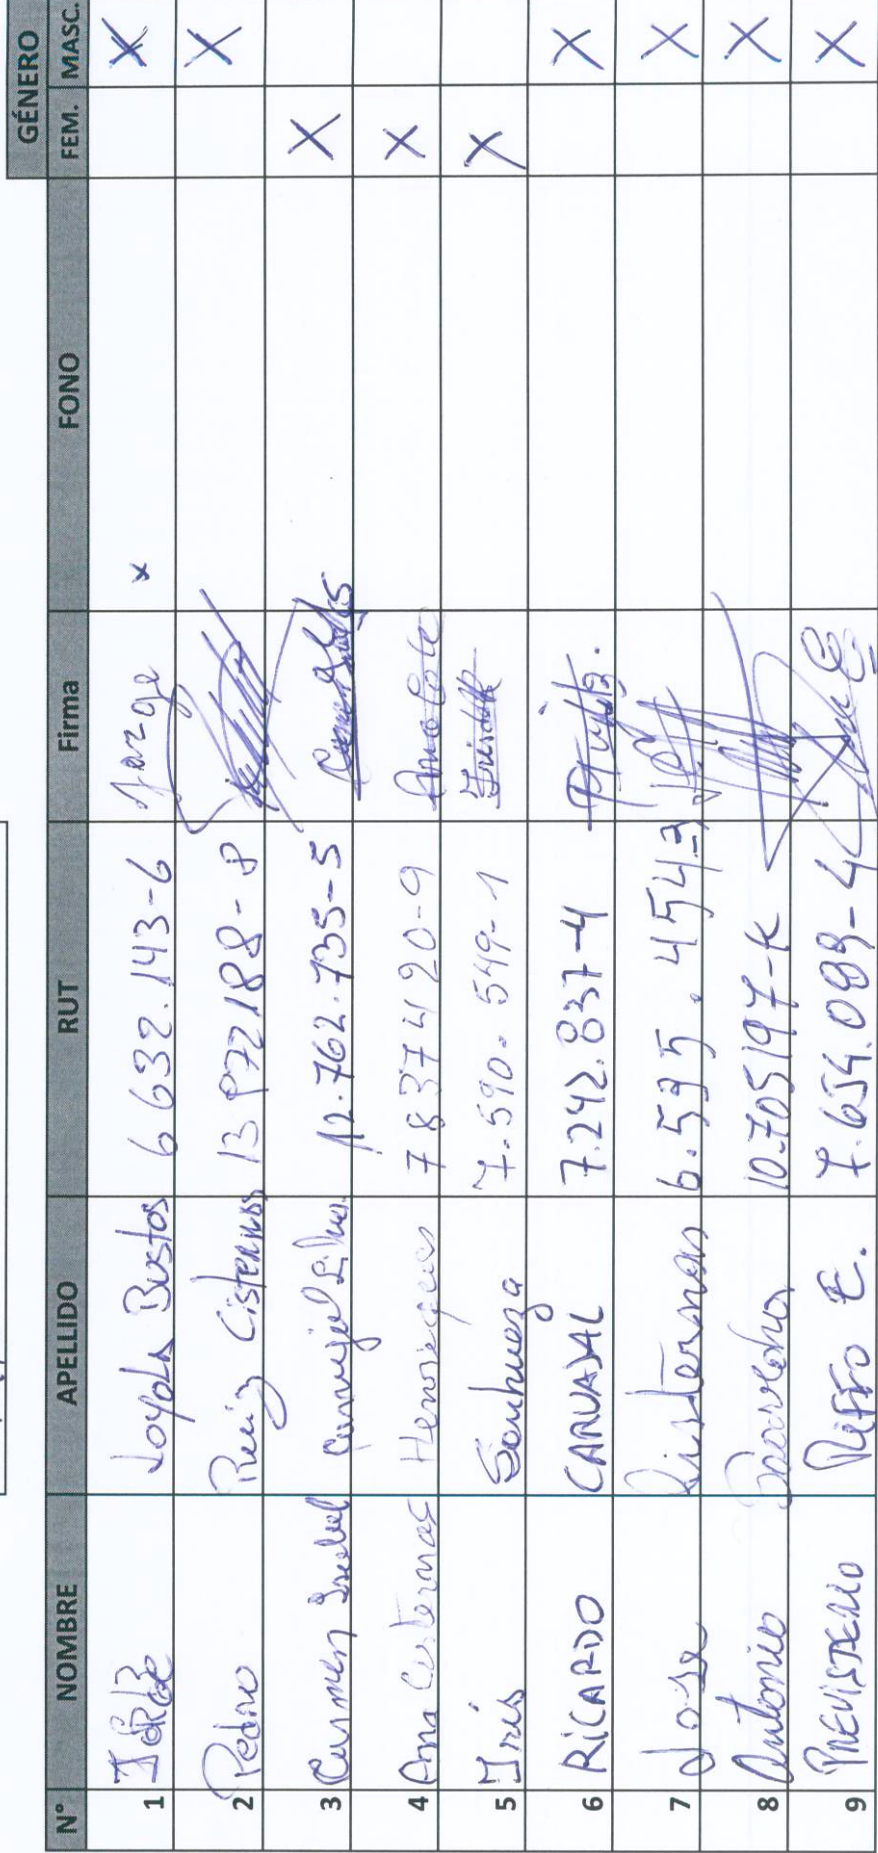 GÉNERO
N° NOMBRE APELLIDO RUT Firma FONO FEM. MASC.
1 JORGE Loyola Bustos 6632.143-6 Jorge x X
2 Pedro Ruiz Cisternas 13972188-8 X
3 Carmen Isabel Carvajal 12.762.735-5 X
4 Ana Cisternas Henriquez 7837420-9 X
5 Iris Sanhueza 7.590.549-1 X
6 RICARDO CARVAJAL 7.242.837-4 X
7 Jose Cisternas 6.595.454-3 X
8 Antonio 10.705197-K X
9 Riffo E. 7.654.099-4 X